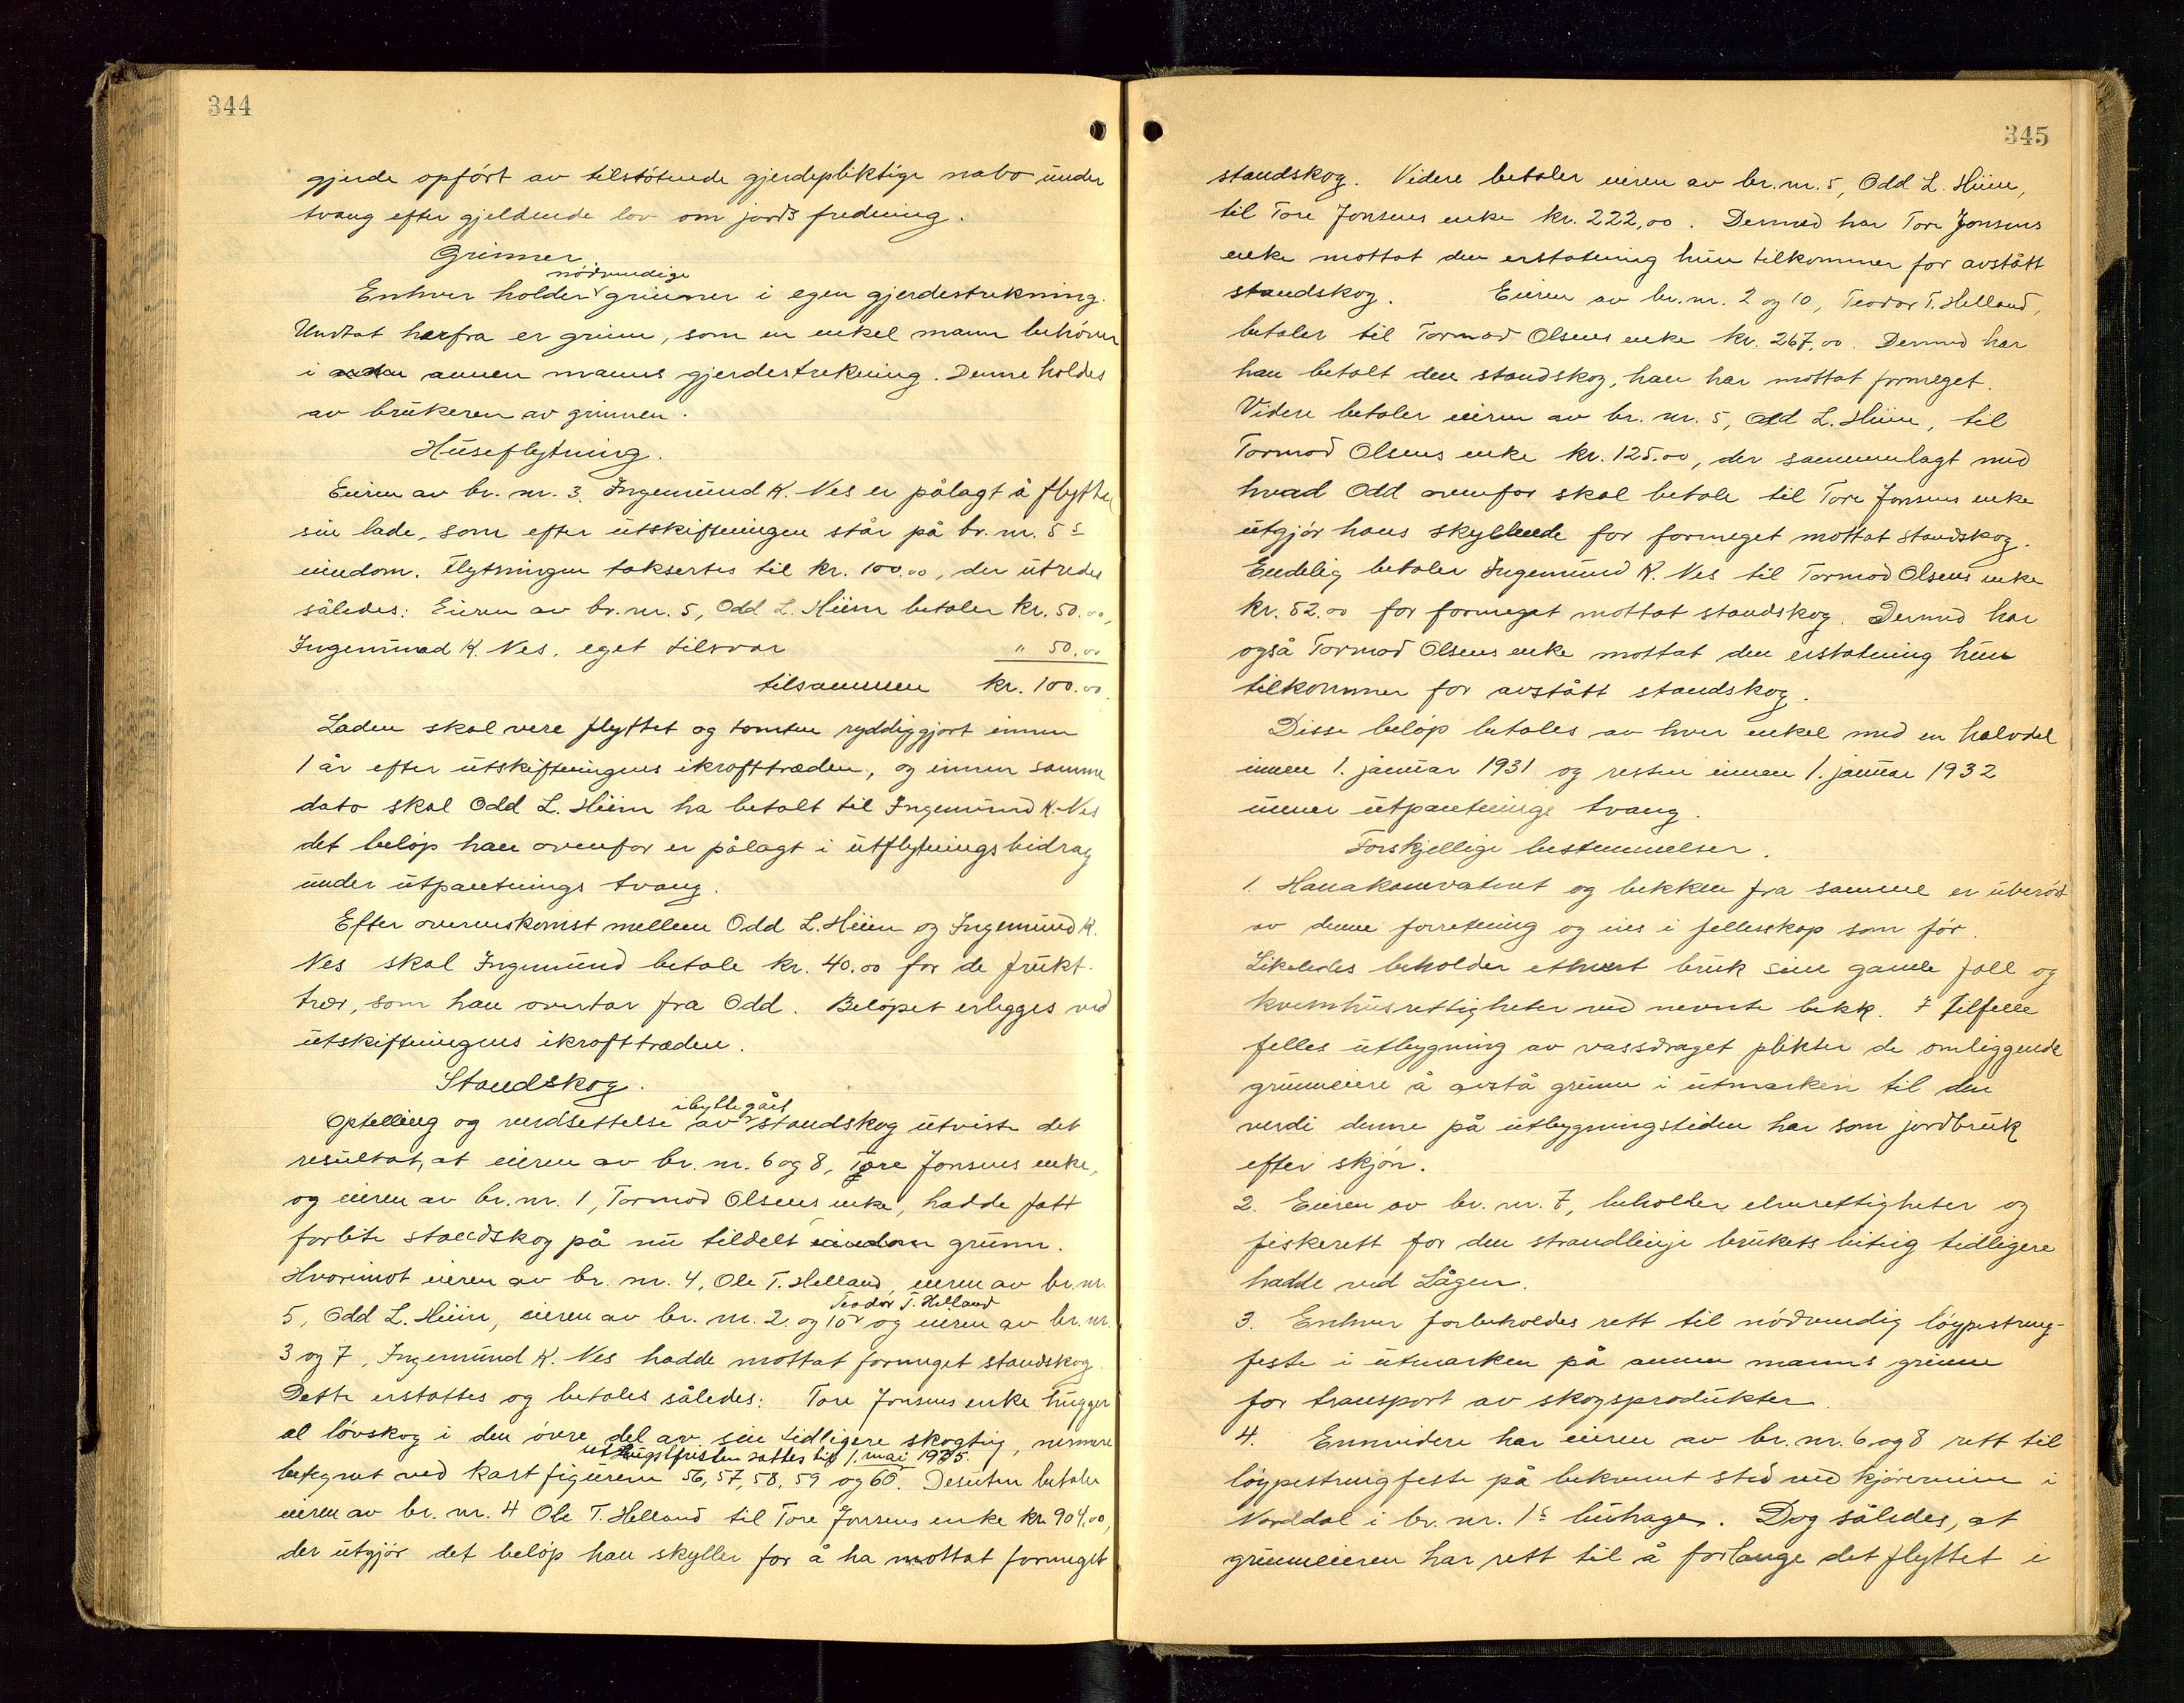 344
gjerde opført av tilstøtende gjerdepliktige nabo under
tvang efter gjeldende lov om jords fredning.
Grinner
nødvendige
Enhver holder grinner i egen gjerdestrekning.
Undtat herfra er grinn, som en enkel mann behøver
i annen manns gjerdestrekning. Denne holdes
av brukeren av grinnen.
Huseflytning.
Eieren av br. nr. 3. Ingemund K. Nes er pålagt å flytte
sin lade, som efter utskiftningen står på br. nr. 5s
eiendom. Flytningen taksertes til kr. 100.00, der utredes
således: Eieren av br. nr. 5, Odd L. Hiim betaler kr. 50.00,
Ingemund K. Nes, eget tilsvar " 50.00
tilsammen kr. 100.00.
Laden skal være flyttet og tomten ryddiggjort innen
1 år efter utskiftningens ikrafttræden, og innen samme
dato skal Odd L. Hiim ha betalt til Ingemund K. Nes
det beløp han ovenfor er pålagt i utflytningsbidrag
under utpantnings tvang.
Efter overenskomst mellem Odd L. Hiim og Ingemund K.
Nes skal Ingemund betale kr. 40.00 for de frukt-
trær, som han overtar fra Odd. Beløpet erlegges ved
utskiftningens ikrafttræden.
Standskog.
ibyttegått
Optelling og verdsettelse av standskog utviste det
resultat, at eieren av br. nr. 6 og 8, Tore Jonsens enke,
og eieren av br. nr. 1, Tormod Olsens enke, hadde fått
forlite standskog på nu tildelt grunn.
Hvorimot eieren av br. nr. 4, Ole T. Helland, eieren av br. nr.
Teodor T. Helland
5, Odd L. Hiim, eieren av br. nr. 2 og 10 og eieren av br. nr.
3 og 7, Ingemund K. Nes hadde mottat formeget standskog.
Dette erstattes og betales således: Tore Jonsens enke hugger
al løvskog i den øvre del av sin tidligere skogteig, nermere
uthugstfristen sattes til 1. mai 1935.
betegnet ved kartfigurene 56, 57, 58, 59 og 60. Desuten betaler
eieren av br. nr. 4 Ole T. Helland til Tore Jonsens enke kr. 904.00,
der utgjør det beløp han skyller for å ha mottat formeget
345
standskog. Videre betaler eieren av br. nr. 5, Odd L. Hiim,
til Tore Jonsens enke kr. 222,00. Dermed har Tore Jonsens
enke mottat den erstatning hun tilkommer for avstått
standskog. Eieren av br. nr. 2 og 10, Teodor T. Helland,
betaler til Tormod Olsens enke kr. 267,00. Dermed har
han betalt den standskog, han har mottat formeget.
Videre betaler eieren av br. nr. 5, Odd L. Hiim, til
Tormod Olsens enke kr. 125.00, der sammenlagt med
hvad Odd ovenfor skal betale til Tore Jonsens enke
utgjør hans skyllende for formeget mottat standskog.
Endelig betaler Ingemund K. Nes til Tormod Olsens enke
kr. 52.00 for formeget mottat standskog. Dermed har
også Tormod Olsens enke mottat den erstatning hun
tilkommer for avstått standskog.
Disse beløp betales av hver enkel med en halvdel
innen 1. januar 1931 og resten innen 1. januar 1932
unner utpantnings tvang.
Forskjellige bestemmelser.
1. og bekken fra samme er uberørt
av denne forretning og eies i fellesskap som før.
Likeledes beholder ethvert bruk sine gamle fall og
kvernhusrettigheter ved nevnte bekk. I tilfelle
felles utbygning av vassdraget plikter de omliggende
grunneiere å avstå grunn i utmarken til den
verdi denne på utbygningstiden har som jordbruk
efter skjøn.
2. Eieren av br. nr. 7, beholder elverettigheter og
fiskerett for den strandlinje brukets tidligere
hadde ved Lågen.
3. Enhver forbeholdes rett til nødvendig løypestreng-
feste i utmarken på annen manns grunn
for transport av skogsprodukter.
4. Ennvidere har eieren av br. nr. 6 og 8 rett til
løypestrengfeste på bekvemt sted ved i
Norddal i br. nr. 1s buhage. Dog således, at
grunneieren har rett til å forlange det flyttet i